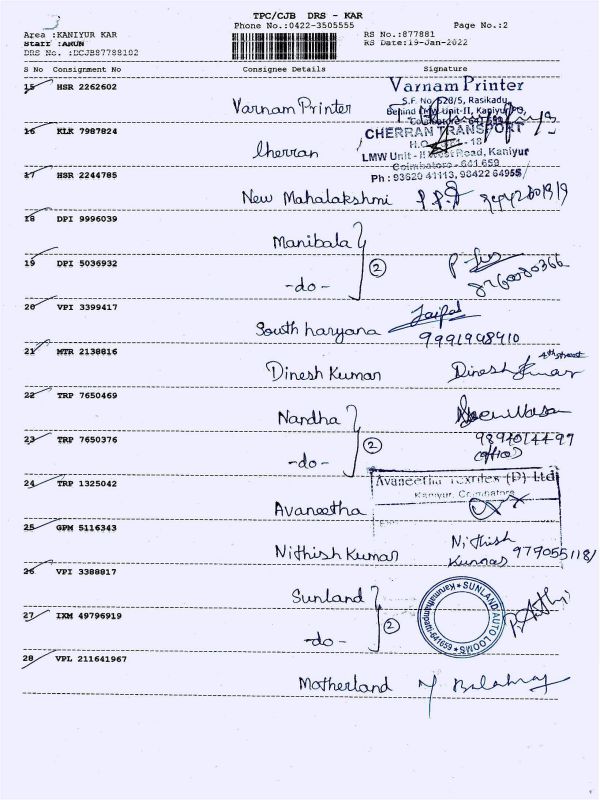 3
TPC/CJB DRS - KAR
Phone No.:0422-3505555
Page No.:2
Area :KANIYUR KAR
Staff :ARUN
DRS No. :DCJB87788102
RS No.:877881
RS Date:19-Jan-2022
S No Consignment No Consignee Details Signature
15 HSR 2262602
Varnam Printer
Varnam Printer
S.F. No. 528/5, Rasikadu,
Behind LMW Unit-II, Kaniyur PO,
Coimbatore - 641 659
16 KLK 7987824
Cherran
CHERRAN TRANSPORT
LMW Unit - II West Road, Kaniyur
Coimbatore - 641 659
Ph : 93620 41113, 98422 64955
17 HSR 2244785
New Mahalakshmi
18 DPI 9996039
Manibala
19 DPI 5036932
-do- 2
8760080366
20 VPI 3399417
South haryana
Jaipal
9991948410
21 MTR 2138816
Dinesh Kumar
4th street
Dinesh Kumar
22 TRP 7650469
Nandha
23 TRP 7650376
-do- 2
(office)
24 TRP 1325042
Avaneetha
Avaneetha Textiles (P) Ltd
Kaniyur, Coimbatore
25 GPM 5116343
Nithish Kumar
Nithish
Kumar
26 VPI 3388817
Sunland
27 IXM 49796919
-do- 2
SUNLAND AUTO LOOMS
Karumathampatti-641659
28 VPL 211641967
Motherland